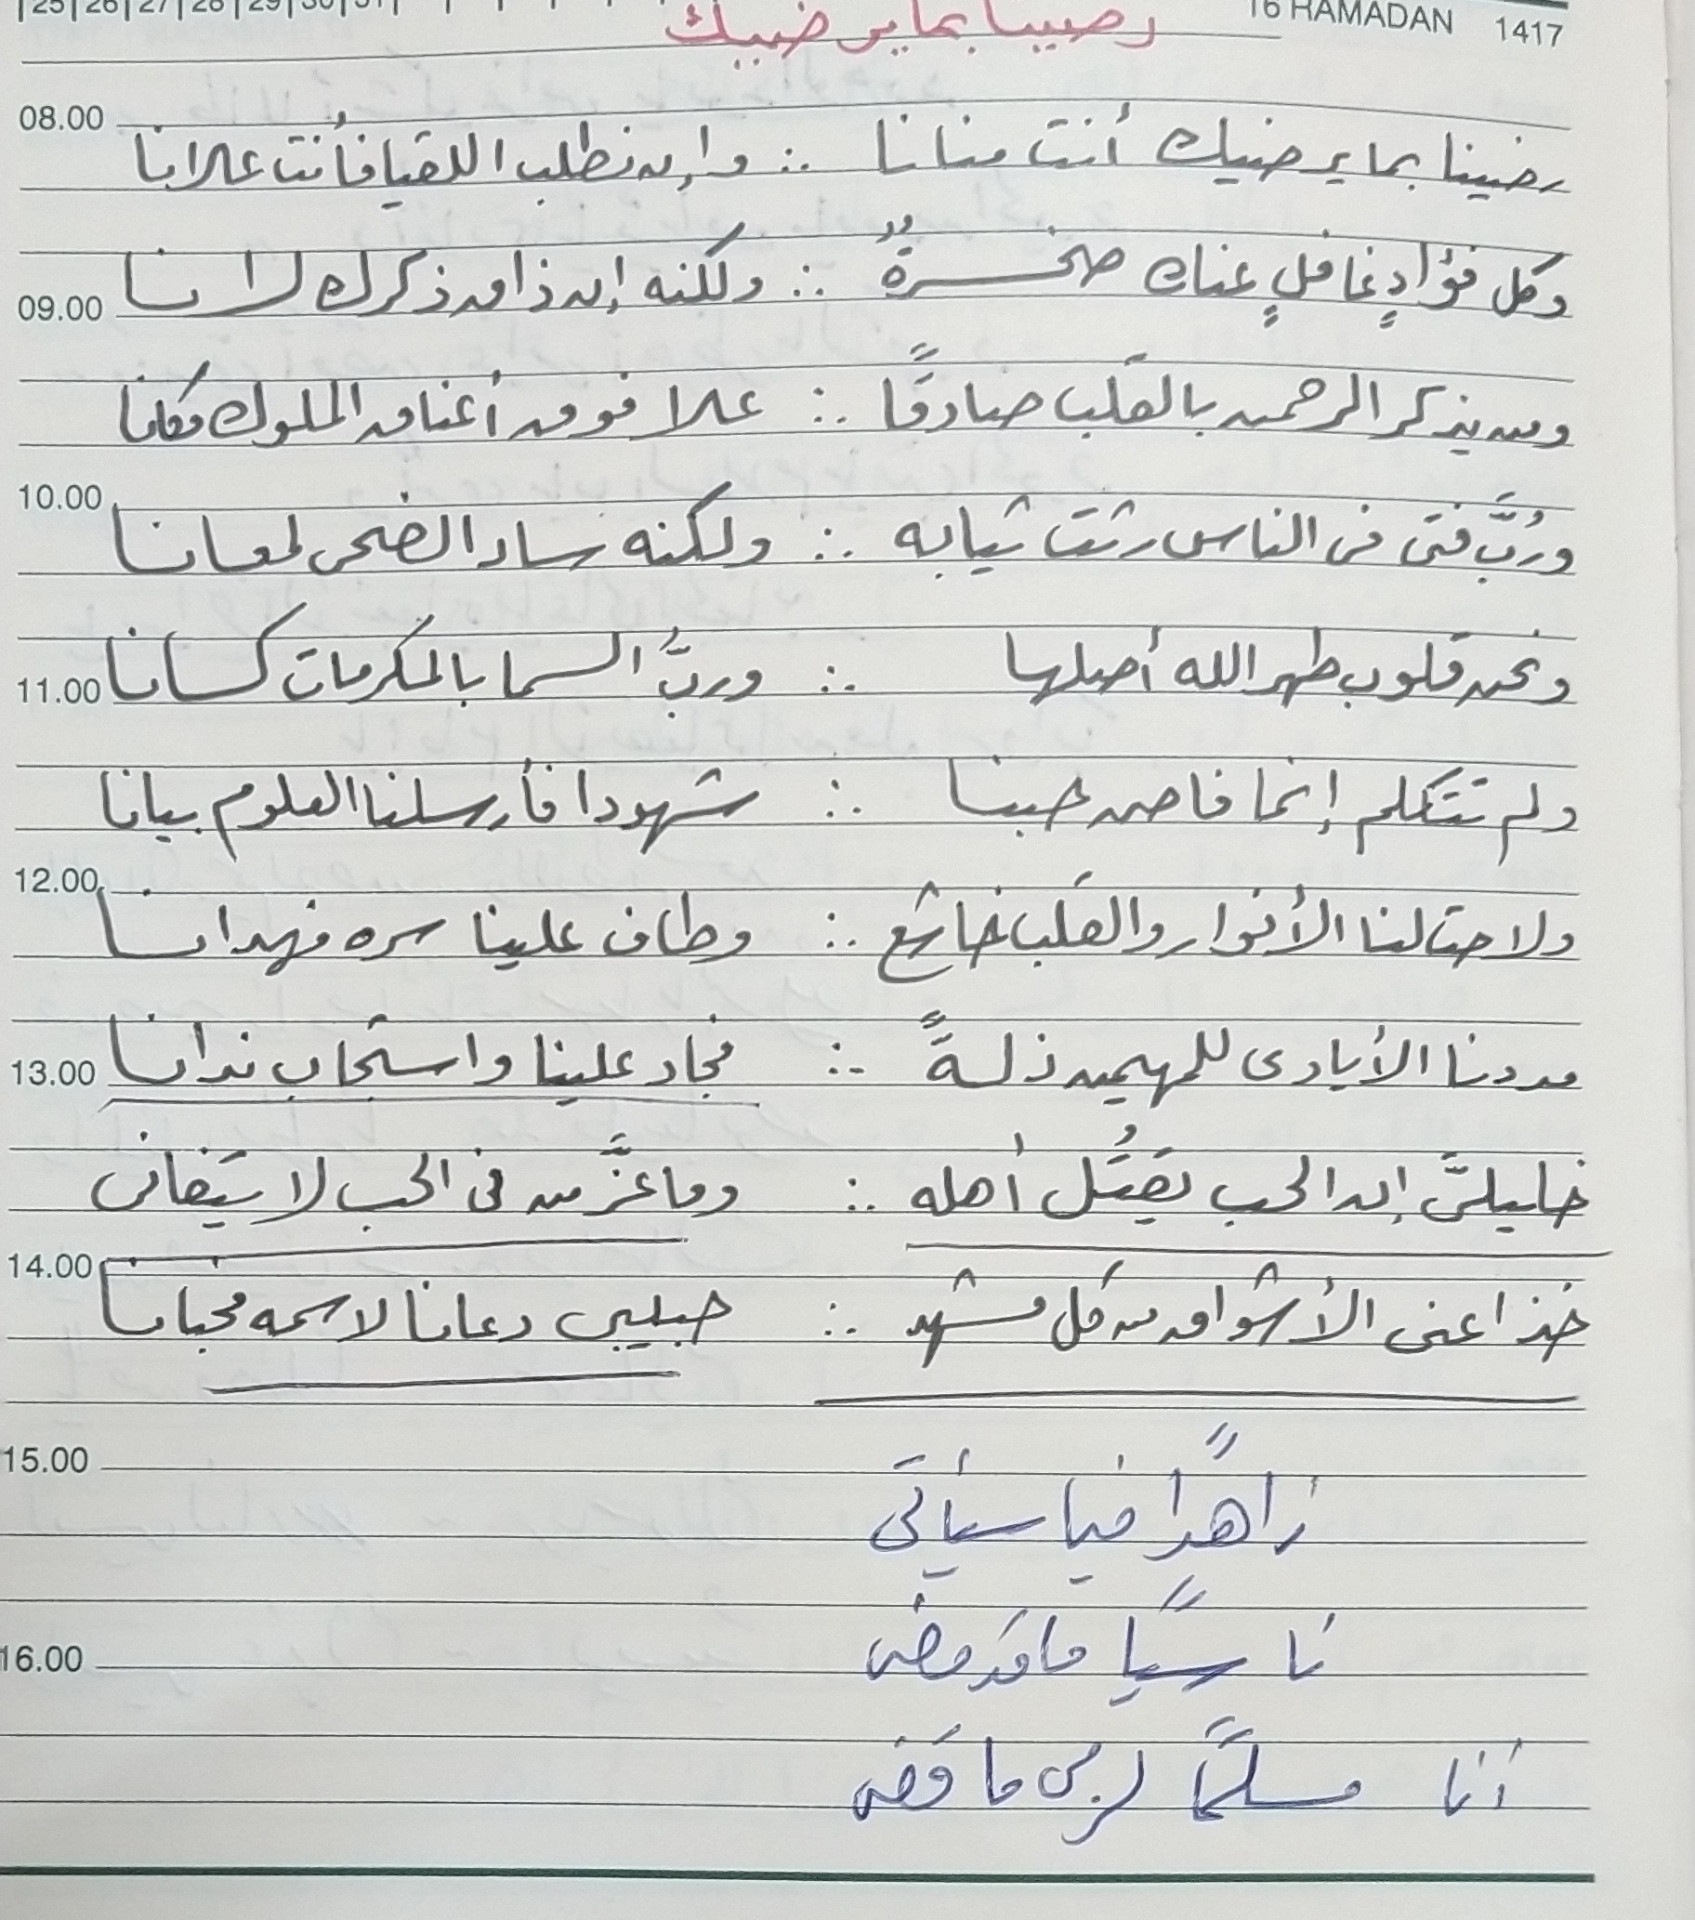 25|26|27|28|29|30|31| 16 RAMADAN 1417
رضينا بما يرضيك
08.00
رضينا بما يرضيك أنت منانا ∴ وإن نطلب اللقيا فأنت علانا
وكل فؤادٍ غافلٍ عناك صخرةٌ ∴ ولكنه إن ذاق ذكرك لانا
09.00
ومن يذكر الرحمن بالقلب صادقًا ∴ علا فوق أعناق الملوك مكانا
10.00
ورُبَّ فتى فى الناس رثت ثيابه ∴ ولكنه ساد الضحى لمعانا
ونحن قلوب طهر الله أصلها ∴ وربُّ السما بالمكرمات كسانا
11.00
ولم نتكلم إنما فاض حبنا ∴ شهودا فأرسلنا العلوم بيانا
12.00
ولاحت لنا الأنوار والقلب خاشع ∴ وطاف علينا سره فهدانا
مددنا الأيادى للمهيمن ذلةً ∴ فجاد علينا واستجاب ندانا
13.00
خليليَّ إن الحب يَقتُل أهله ∴ وما عزَّ من فى الحب لا يتفانى
14.00
خذا عنى الأشواق من كل مشهد ∴ حبيبى دعانا لاسمه فحبانا
15.00
زاهدًا فيما سيأتى
ناسيًا ما قد مضى
16.00
أنا مسلمًا لربى ما قضى